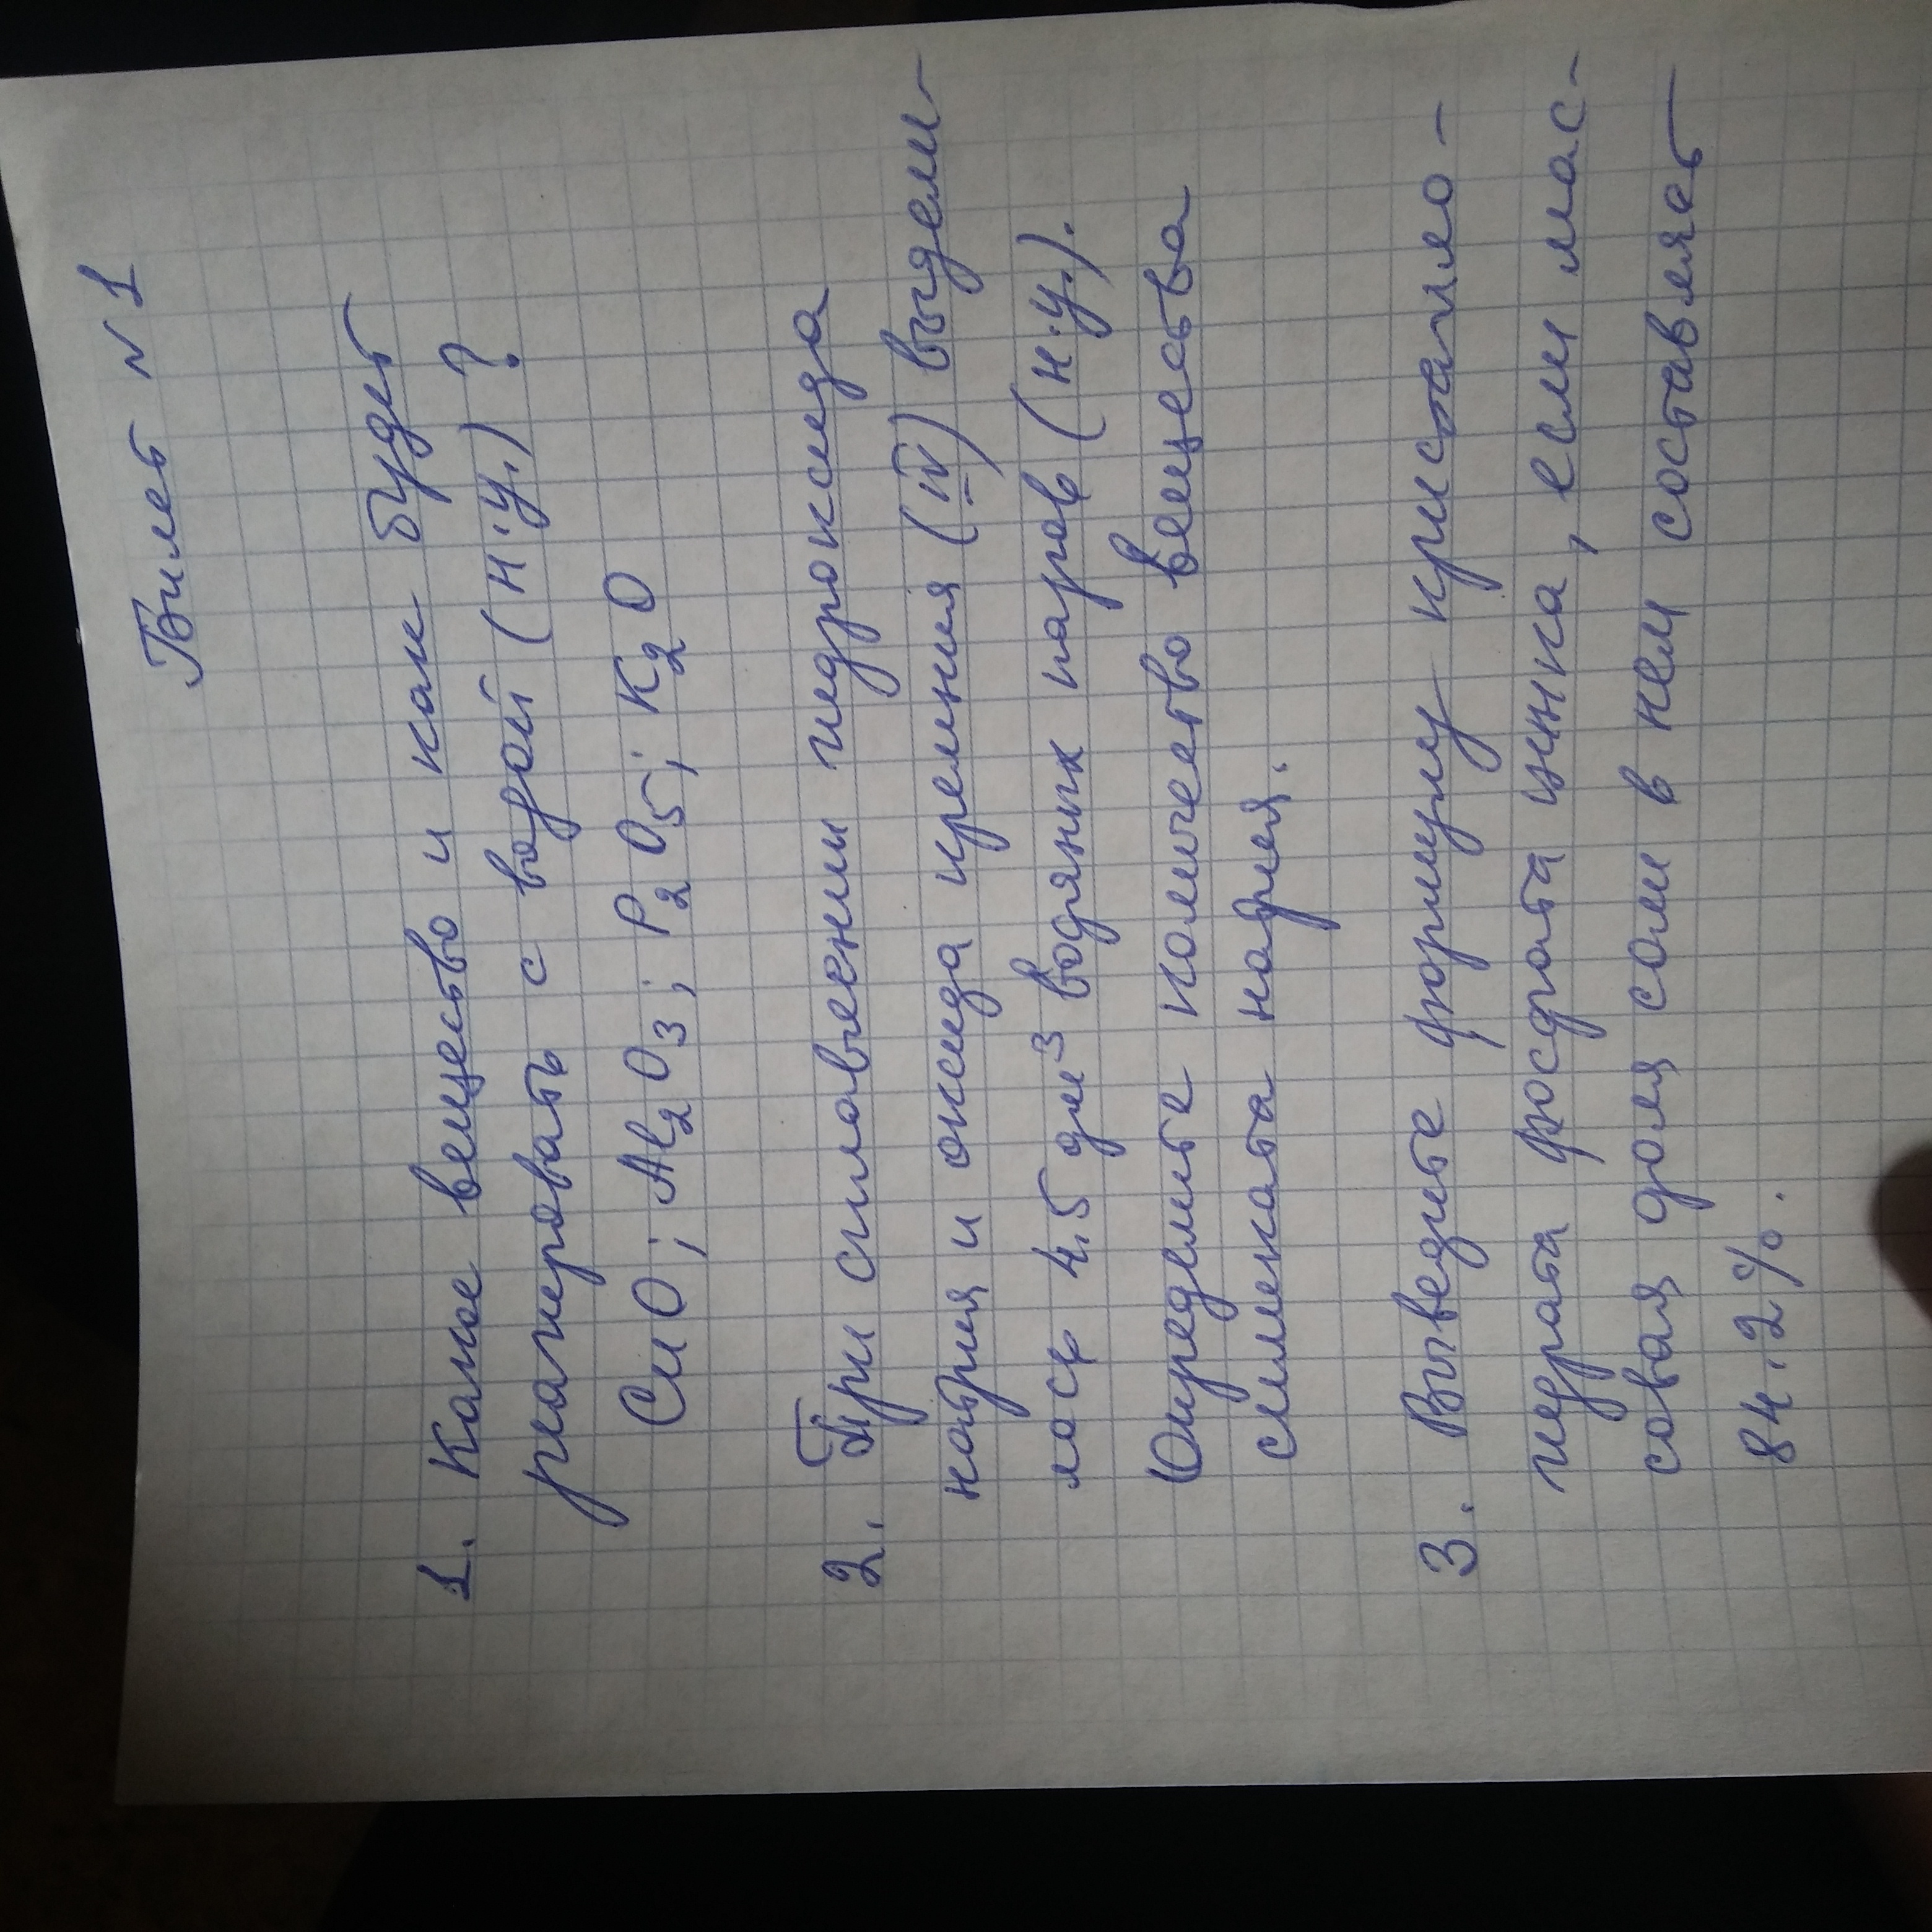 Билет №1
1. Какое вещество и как будет
реагировать с водой (н.у.)?
CuO; Al₂O₃; P₂O₅; K₂O
2. При сплавлении гидроксида
натрия и оксида кремния (IV) выдели-
лось 4,5 дм³ водяных паров (н.у.).
Определите количество вещества
силиката натрия.
3. Выведите формулу кристалло-
гидрата фосфата цинка, если мас-
совая доля соли в нем составляет
84.2%.